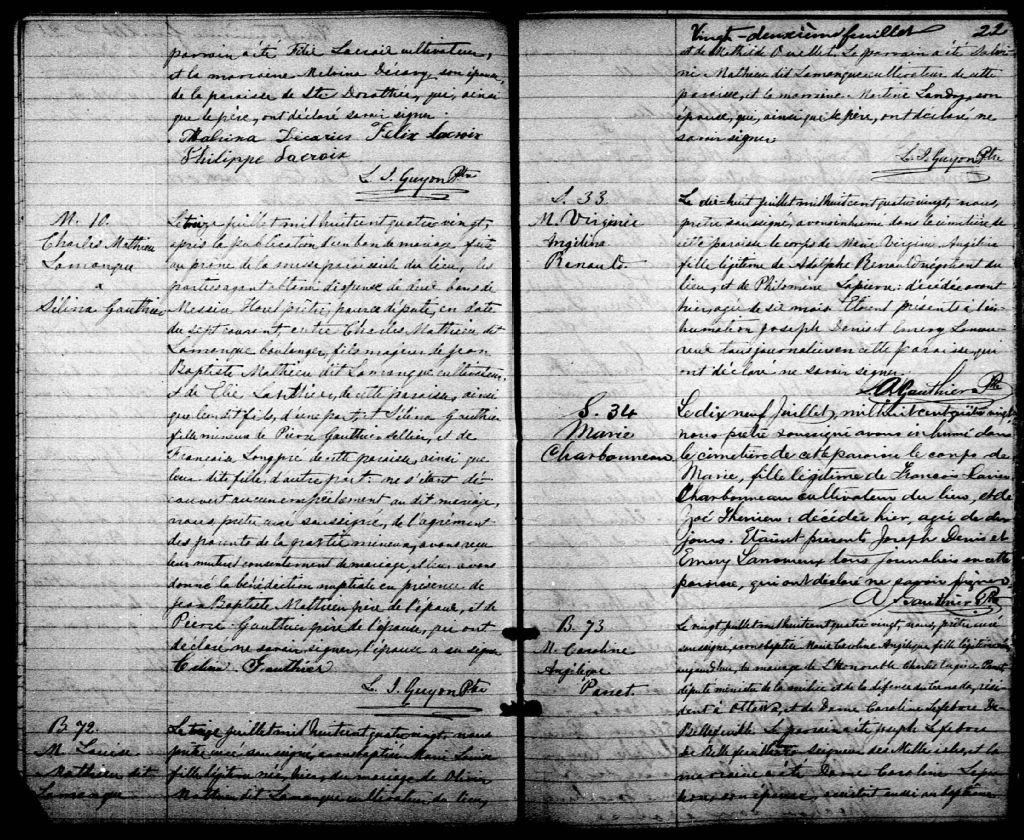 parrain a été Félix Lacroix cultivateur,
et la marraine Melvina Décary, son épouse,
de la paroisse de Ste Dorothée, qui, ainsi
que le père, ont déclaré savoir signer.
Malvina Décaries Félix Lacroix
Philippe Lacroix
L. I. Guyon Ptre
M. 10.
Charles Mathieu
Lamangue
&
Sélina Gauthier
Le treize juillet mil huit cent quatre vingt,
après la publication d'un ban de mariage fait
au prône de la messe paroissiale du lieu, les
parties ayant obtenu dispense de deux bans de
Messire Hout prêtre, pour ce député, en date
du sept courant, entre Charles Mathieu dit
Lamangue boulanger, fils majeur de Jean
Baptiste Mathieu dit Lamangue cultivateur,
et de de cette paroisse, ainsi
que leur dit fils, d'une part, et Sélina Gauthier
fille mineure de Pierre Gauthier sellier, et de
Francoise Longpré de cette paroisse, ainsi que
leur dite fille, d'autre part: ne s'étant dé-
couvert aucun empêchement au dit mariage,
nous, prêtre curé soussigné, de l'agrément
des parents de la partie mineure, avons reçu
leur mutuel consentement de mariage, et leur avons
donné la bénédiction nuptiale en présence de
Jean Baptiste Mathieu père de l'époux, et de
Pierre Gauthier père de l'épouse, qui ont
déclaré ne savoir signer, l'épouse a su signer
Gauthier
L. I. Guyon Ptre
B 72.
M. Louise
Mathieu dit
Lamangue
Le treize juillet mil huit cent quatre vingt, nous
prêtre curé soussigné, avons baptisé Marie Louise
fille légitime née, hier, du mariage de Olivier
Mathieu dit Lamangue cultivateur du lieu,
Vingt-deuxième feuillet 22
et de Mathilde Ouellet. Le parrain a été
Mathieu dit Lamangue cultivateur de cette
paroisse, et la marraine Martine Landry, son
épouse, qui, ainsi que le père, ont déclaré ne
savoir signer.
L. I. Guyon Ptre
S. 33
M. Virginie
Angélina
Renauld.
Le dix-huit juillet mil huit cent quatre vingt, nous,
prêtre soussigné, avons inhumé dans le cimetière de
cette paroisse le corps de Marie Virginie Angélina
fille légitime de Adolphe Renauld négociant du
lieu, et de Philomène Lapierre: décédée avant
hier, agée de six mois. Etaient présents à l'in-
humation Joseph Denis et Emery Lamou-
reux tous journaliers en cette paroisse, qui
ont déclaré ne savoir signer.
A Gauthier Ptre
S. 34
Marie
Charbonneau
Le dix neuf Juillet, mil huit cent quatre vingt
nous prêtre soussigné avons inhumé dans
le cimetière de cette paroisse le corps de
Marie, fille légitime de Francois Xavier
Charbonneau cultivateur du lieu, et de
Zoé Therrien; décédée hier, agée de deux
jours. Etaient présents Joseph Denis et
Emery Lamoureux tous journaliers en cette
paroisse, qui ont déclaré ne savoir signer.
A Gauthier Ptre
B. 73
M. Caroline
Angélique
Panet.
Le vingt juillet mil huit cent quatre vingt, nous, prêtre curé
soussigné, avons baptisé Marie Caroline Angélique fille légitime née
aujourd'hui, du mariage de L'Honorable Charles Eugène Panet
député ministre de la milice et de la défense du Canada, rési-
dent à Ottawa, et de Dame Caroline Lefebvre De
Bellefeuille. Le parrain a été Joseph Lefebvre
de Bellefeuille Seigneur des Mille isles, et la
marraine a été Dame Caroline
son épouse, assistait aussi au baptême